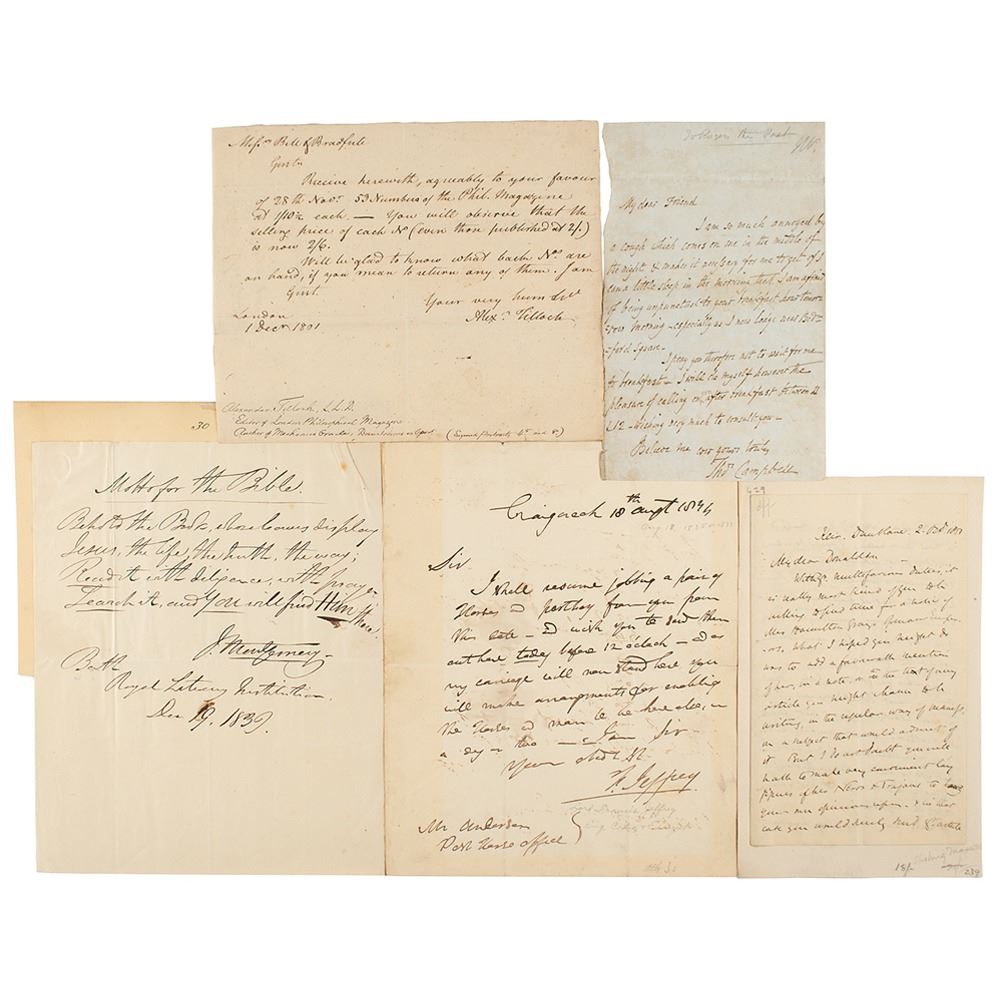 Mess.rs Bell & Bradfute
Gentn
Receive herewith, agreeably to your favour
of 28th Novr 53 Numbers of the Phil. Magazine
at 1/10½ each. — You will observe that the
selling price of each No (even those published at 2/.)
is now 2/6.
Will be glad to know what back Nos. are
on hand, if you mean to return any of them. I am
Gent.
Your very hum Svt
Alexr. Tilloch
London
1 Decr 1801
Alexander Tilloch, L.L.D.
Editor of London Philosophical Magazine
To Rogers the Poet
My dear Friend
I am so much annoyed by
a cough which comes on me in the middle of
the night & makes it necessary for me to get if I
can a little sleep in the morning that I am afraid
of being unpunctual to your breakfast hour tomor-
-row morning—especially as I now lodge near Bed-
-ford Square—
I pray you therefore not to wait for me
to breakfast—I will do myself however the
pleasure of calling on after breakfast between 11
& 12 wishing very much to consult you—
Believe me ever yours truly
Thos Campbell
30
Motto for the Bible.
Behold the Book, whose leaves display
Jesus, the life, the truth, the way;
Read it with diligence, with prayer
Search it, and you will find Him there.
J. Montgomery—
Bath
Royal Literary Institution
Dec 19, 1839.
Craigcrook 18th augt 1834
Sir
I shall resume jobbing a pair of
Horses & postboy from you from
this date — & wish you to send them
out here today before 12 o'clock — & as
my carriage will now stand here you
will make arrangements for enabling
the Horses & man to be here also, in
a day or two — I am Sir
Your obedt St
F. Jeffrey
Mr Anderson
Post Horse office
629
My dear Donaldson
With yr multifarious duties, it
is really most kind of you to be
writing & find time for a notice of
Mrs Hamilton Gray's
was to add a favourable mention
of her, in a note, or in the text of any
article you might chance to be
writing, in the regular way of business,
on a subject that would admit of
it But I do not doubt you will
your own opinions upon. & in that
case you would surely
18/-
239